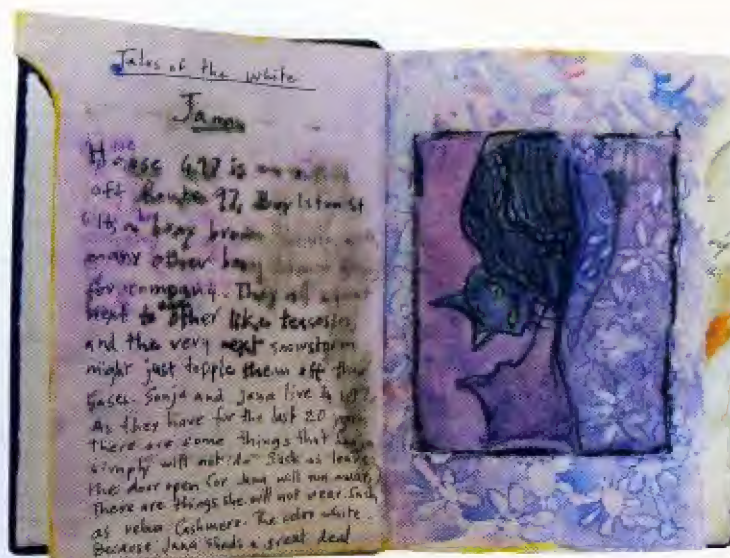 Tales of the white
Jana
House 697 is
off Route 97, Boylston St
It's a boxy brown
many other boxy
for company. They all
next to other like
and the very next snowstorm
might just topple them off their
bases. Sonja and Jana live in 697
As they have for the last 20
there are some things that
simply will not do. Such as leave
the door open for Jana will run away.
There are things she will not wear. Such
as velour Cashmere. The color white
Because Jana sheds a great deal